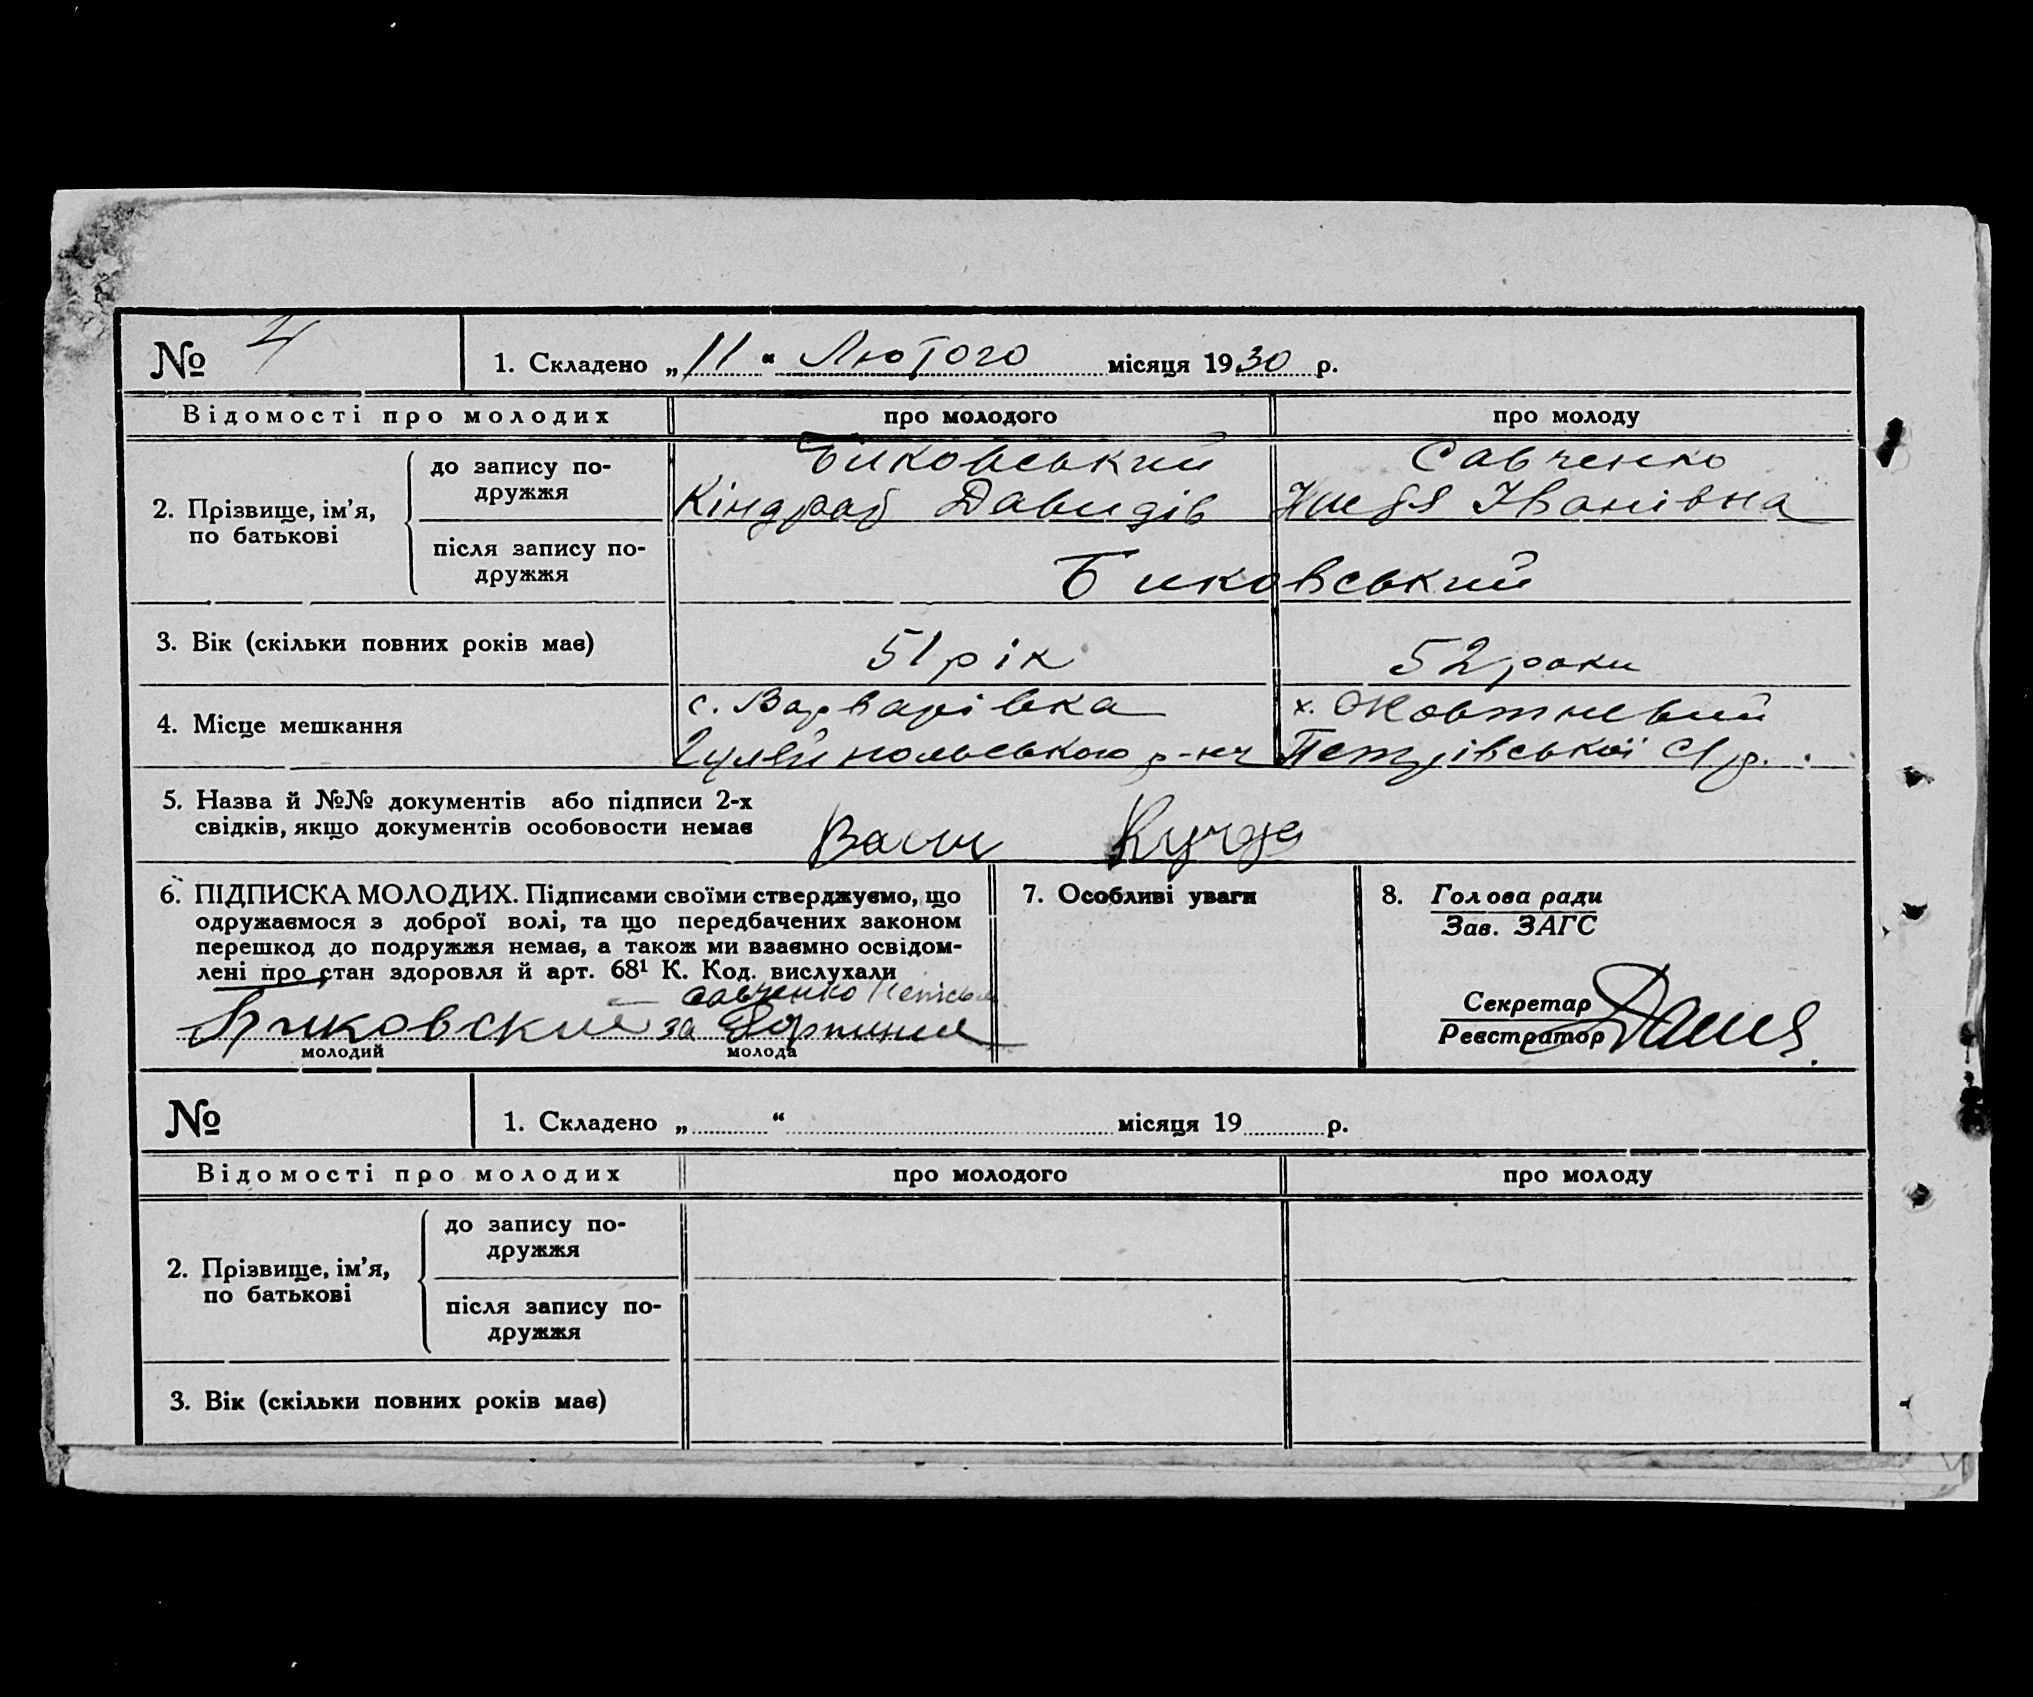 № 4 1. Складено „ 11 “ Лютого місяця 1930 р.
Відомості про молодих про молодого про молоду
2. Прізвище, ім’я, по батькові
до запису подружжя
Биковський Савченко
Давидів Іванівна
після запису подружжя
Биковський
3. Вік (скільки повних років має) 51 рік 52 роки
4. Місце мешкання
с. Варварівка х. Жовтневий
Гуляйпольського р-ну Петрівської С/р.
5. Назва й №№ документів або підписи 2-х
свідків, якщо документів особовости немає
6. ПІДПИСКА МОЛОДИХ. Підписами своїми стверджуємо, що
одружаємося з доброї волі, та що передбачених законом
перешкод до подружжя немає, а також ми взаємно освідом-
лені про стан здоров'я й арт. 68¹ К. Код. вислухали
Савченко
Биковский за
молодий молода
7. Особливі уваги
8. Голова ради
Зав. ЗАГС
Секретар
Реєстратор
№ 1. Складено „ “ місяця 19 р.
Відомості про молодих про молодого про молоду
2. Прізвище, ім’я, по батькові
до запису подружжя
після запису подружжя
3. Вік (скільки повних років має)